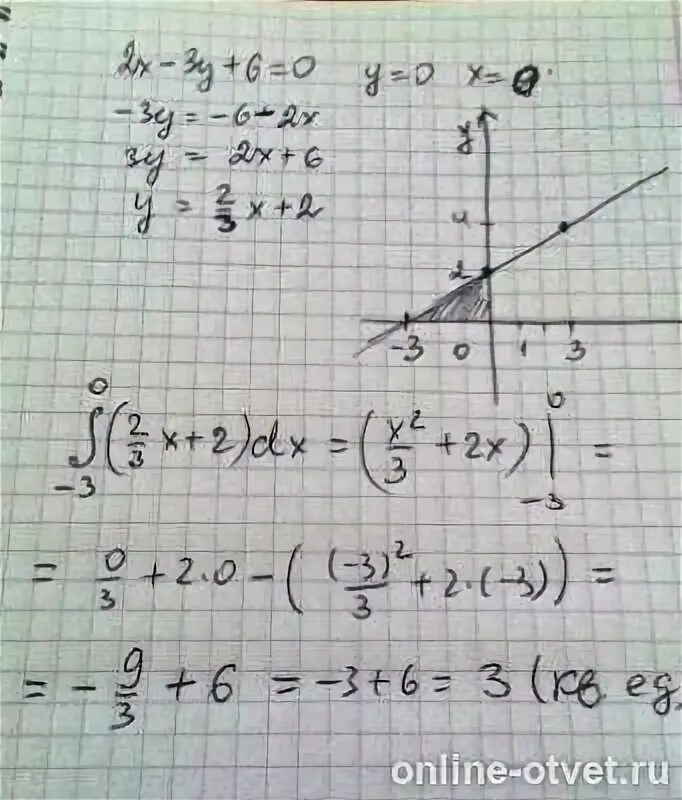 2x - 3y + 6 = 0 y = 0 x = 0
-3y = -6 - 2x
3y = 2x + 6
y = 2/3 x + 2
y
4
2
-3 0 1 3
∫₋₃⁰ (2/3 x + 2) dx = (x²/3 + 2x) |₋₃⁰ =
= 0/3 + 2·0 - ((-3)²/3 + 2·(-3)) =
= - 9/3 + 6 = -3 + 6 = 3 (кв ед.
online-otvet.ru